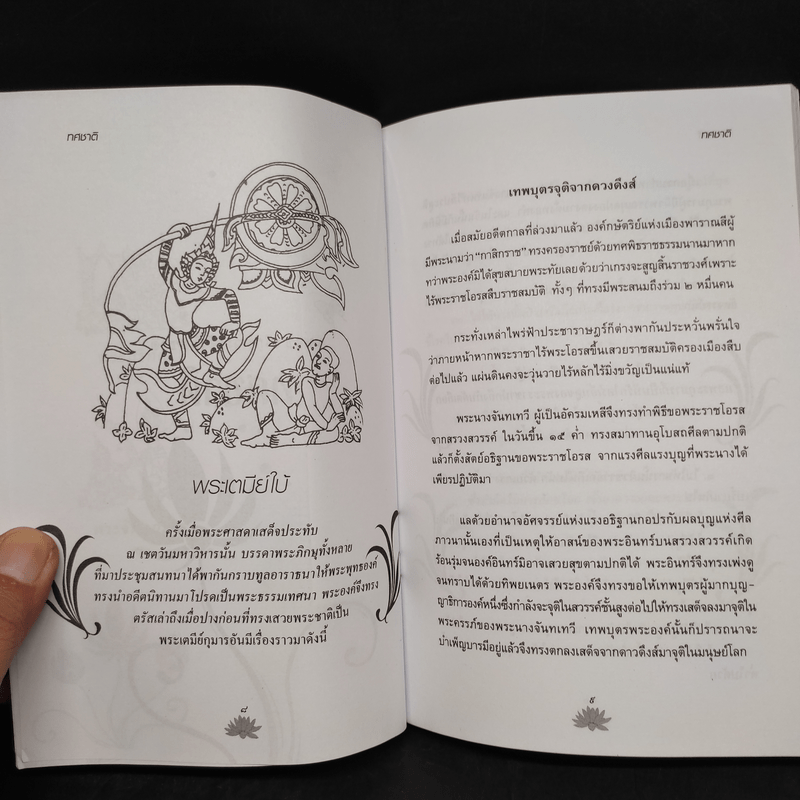 ทศชาติ
พระเตมีย์ใบ้
ครั้งเมื่อพระศาสดาเสด็จประทับ
ณ เชตวันมหาวิหารนั้น บรรดาพระภิกษุทั้งหลาย
ที่มาประชุมสนทนาได้พากันกราบทูลอาราธนาให้พระพุทธองค์
ทรงนำอดีตนิทานมาโปรดเป็นพระธรรมเทศนา พระองค์จึงทรง
ตรัสเล่าถึงเมื่อปางก่อนที่ทรงเสวยพระชาติเป็น
พระเตมีย์กุมารอันมีเรื่องราวมาดังนี้
๘
ทศชาติ
เทพบุตรจุติจากดวงดึงส์
เมื่อสมัยอดีตกาลที่ล่วงมาแล้ว องค์กษัตริย์แห่งเมืองพาราณสีผู้
มีพระนามว่า "กาสิกราช" ทรงครองราชย์ด้วยทศพิธราชธรรมนานมาหาก
ทว่าพระองค์มิได้สุขสบายพระทัยเลยด้วยว่าเกรงจะสูญสิ้นราชวงศ์เพราะ
ไร้พระราชโอรสสืบราชสมบัติ ทั้งๆ ที่ทรงมีพระสนมถึงร่วม ๒ หมื่นคน
กระทั่งเหล่าไพร่ฟ้าประชาราษฎร์ก็ต่างพากันประหวั่นพรั่นใจ
ว่าภายหน้าหากพระราชาไร้พระโอรสขึ้นเสวยราชสมบัติครองเมืองสืบ
ต่อไปแล้ว แผ่นดินคงจะวุ่นวายไร้หลักไร้มิ่งขวัญเป็นแน่แท้
พระนางจันทเทวี ผู้เป็นอัครมเหสีจึงทรงทำพิธีขอพระราชโอรส
จากสรวงสวรรค์ ในวันขึ้น ๑๕ ค่ำ ทรงสมาทานอุโบสถศีลตามปกติ
แล้วก็ตั้งสัตย์อธิฐานขอพระราชโอรส จากแรงศีลแรงบุญที่พระนางได้
เพียรปฏิบัติมา
แลด้วยอำนาจอัศจรรย์แห่งแรงอธิฐานกอปรกับผลบุญแห่งศีล
ภาวนานั้นเองที่เป็นเหตุให้อาสน์ของพระอินทร์บนสรวงสวรรค์เกิด
ร้อนรุ่มจนองค์อินทร์มิอาจเสวยสุขตามปกติได้ พระอินทร์จึงทรงเพ่งดู
จนทราบได้ด้วยทิพยเนตร พระองค์จึงทรงขอให้เทพบุตรผู้มากบุญ-
ญาธิการองค์หนึ่งซึ่งกำลังจะจุติในสวรรค์ชั้นสูงต่อไปให้ทรงเสด็จลงมาจุติใน
พระครรภ์ของพระนางจันทเทวี เทพบุตรพระองค์นั้นก็ปรารถนาจะ
บำเพ็ญบารมีอยู่แล้วจึงทรงตกลงเสด็จจากดาวดึงส์มาจุติในมนุษย์โลก
๙